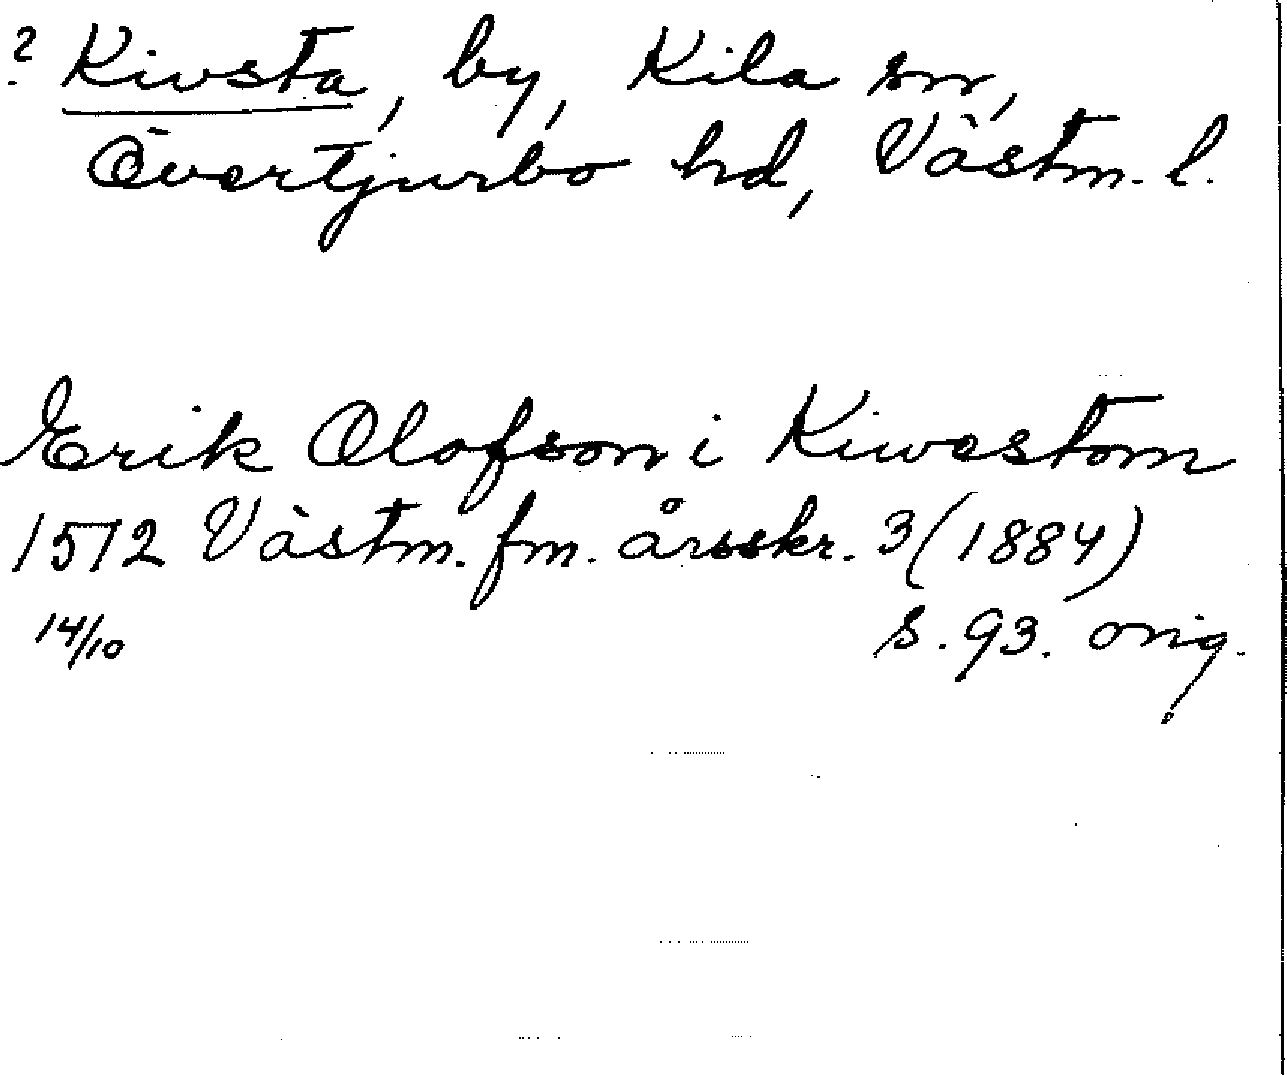 ? Kivsta, by, Kila sn,
Övertjurbo hd, Västm. l.
Erik Olofson i Kiwastom
1512 Västm. fm. årsskr. 3 (1884)
14/10 s. 93. orig.